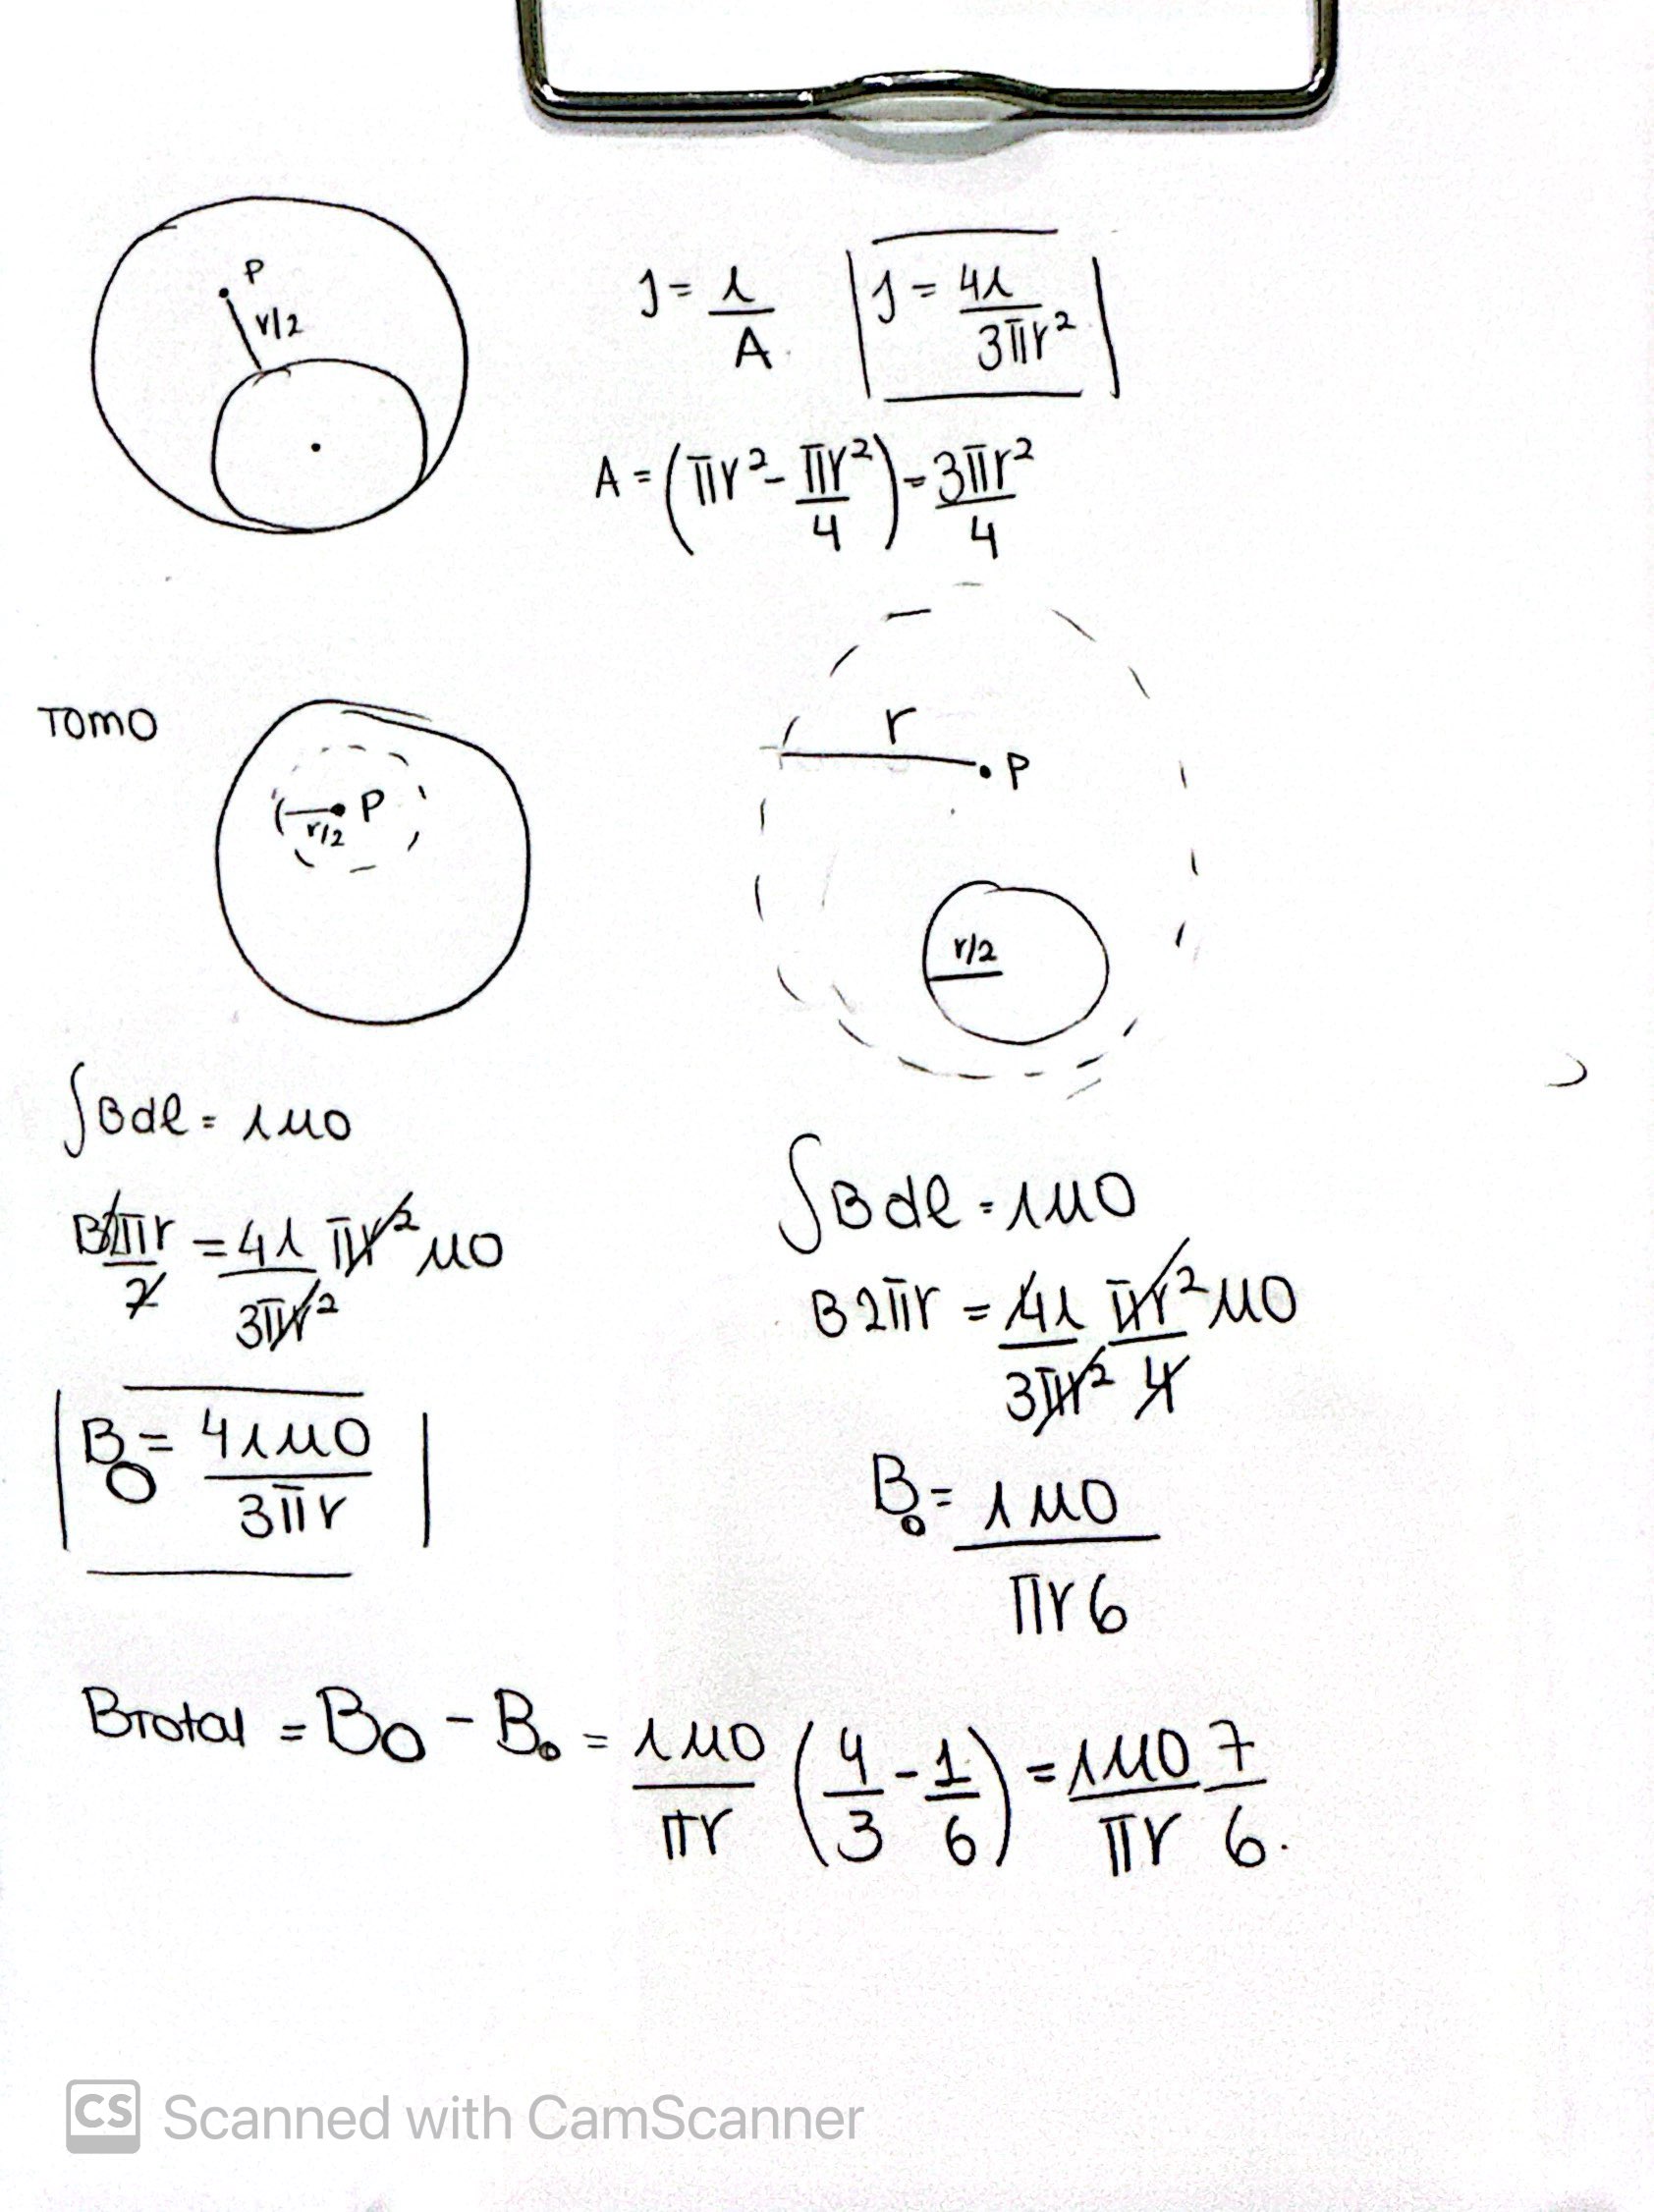 P
r/2
J = i/A J = 4i/3πr²
A = (πr² - πr²/4) = 3πr²/4
TOMO
P
r/2
r
P
r/2
∫Bdl = iμ0
B2πr/2 = 4i/3πr² πr² μ0
B○ = 4iμ0/3πr
∫Bdl = iμ0
B2πr = 4i/3πr² πr²/4 μ0
B∘ = iμ0/πr6
Btotal = B○ - B∘ = iμ0/πr (4/3 - 1/6) = iμ0/πr 7/6.
CS Scanned with CamScanner